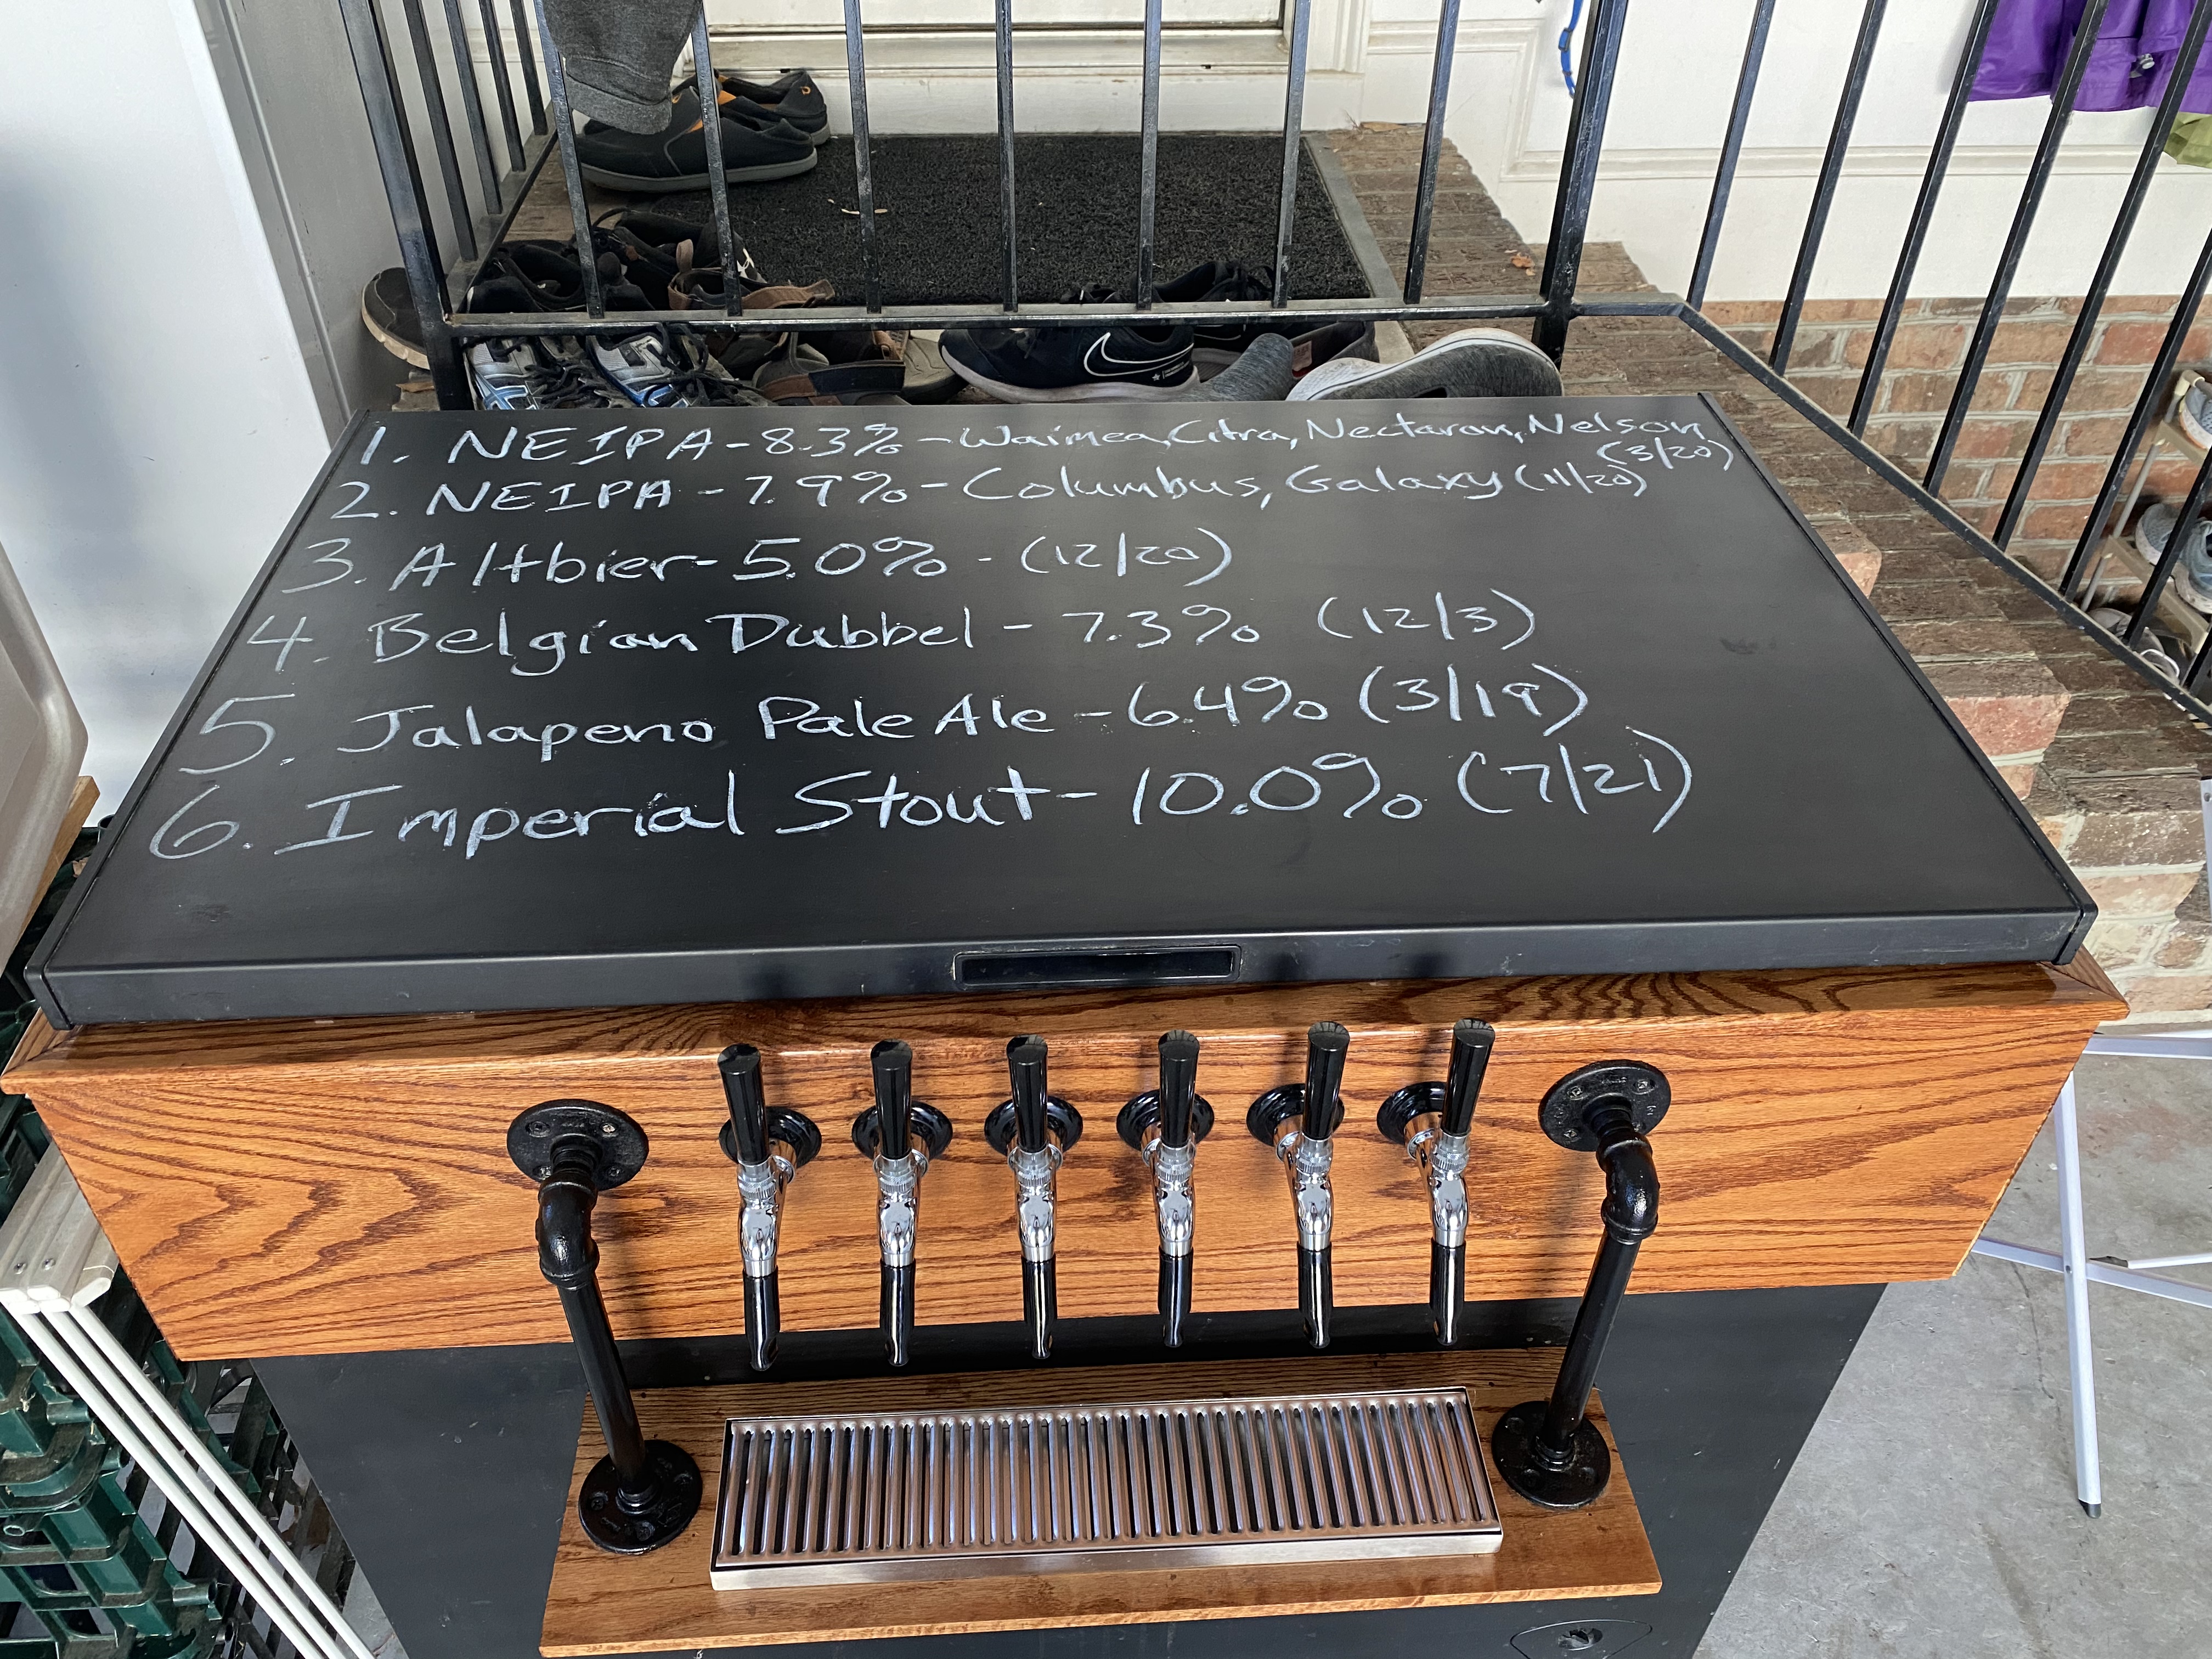 1. NEIPA - 8.3% - Waimea, Citra, Nectaron, Nelson
(3/20)
2. NEIPA - 7.9% - Columbus, Galaxy (11/20)
3. Altbier - 5.0% - (12/20)
4. Belgian Dubbel - 7.3% (12/3)
5. Jalapeno Pale Ale - 6.4% (3/19)
6. Imperial Stout - 10.0% (7/21)